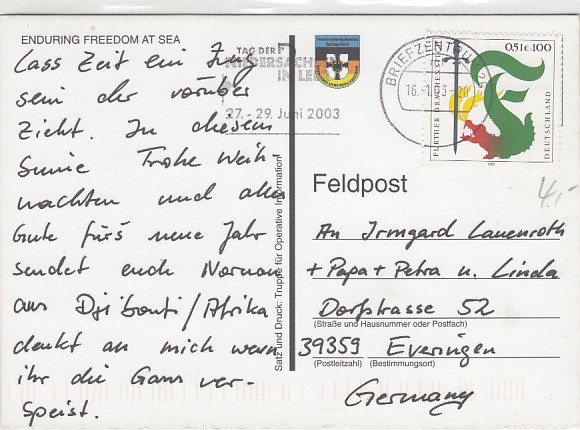 ENDURING FREEDOM AT SEA
Lass Zeit ein Zug
sein der vorüber
Zieht. In diesem
Sinne Frohe Weih
nachten und alles
Gute fürs neue Jahr
sendet euch Norman
aus Djibouti/Afrika
denkt an mich wenn
ihr die Gans ver-
speist.
TAG DER
NIEDERSACHSEN
IN LEER
27. - 29. Juni 2003
BRIEFZENTRUM
0,51€ 100
FURTHER DRACHENSTICH
DEUTSCHLAND
4,-
Satz und Druck: Truppe für Operative Information
Feldpost
An Irmgard Lauenroth
+ Papa + Petra u. Linda
Dorfstrasse 52
(Straße und Hausnummer oder Postfach)
39359 Everingen
(Postleitzahl) (Bestimmungsort)
Germany